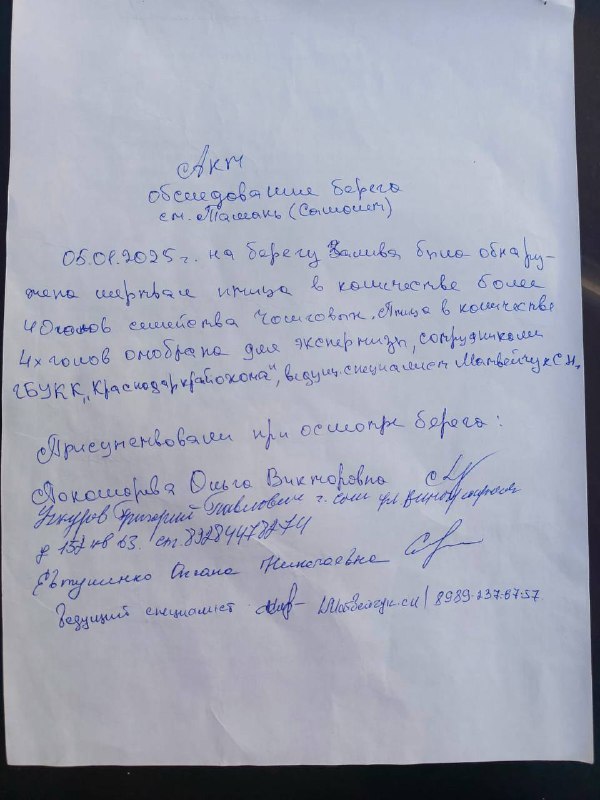 Акт
обследование берега
ст. Тамань (Солёник)
05.01.2025 г. на берегу Залива было обнару-
жена мертвая птица в количестве более
40 голов семейства Чомговых. Птица в количестве
4х голов отобрана для экспертизы, сотрудниками
ГБУ КК „Краснодаркрайохота", ведущ. специалист Матвейчук С.Н.
Присутствовали при осмотре берега:
Покошарева Ольга Викторовна
Григорий Павлович г. Сочи ул Виноградная
д 152 кв 63. ст. 89284478274
Евтушенко Оксана Николаевна
Ведущий специалист Матвейчук С.Н / 8989-237-67-57